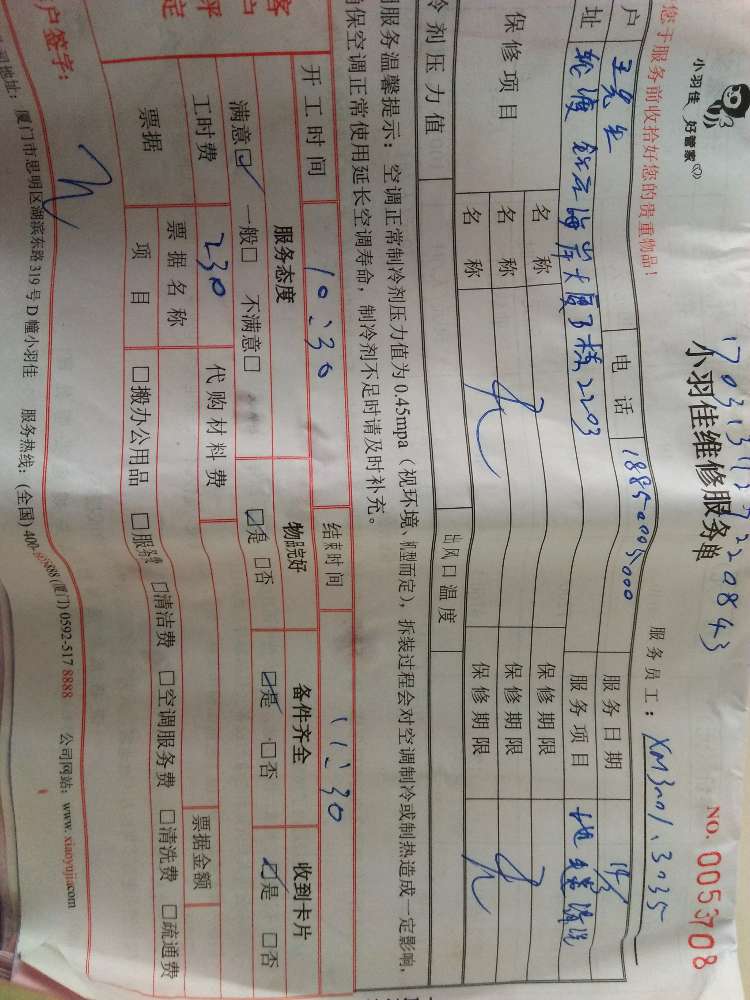 小羽佳 好管家
小羽佳维修服务单
NO. 0053708
您于服务前收拾好您的贵重物品！
服务员工： XM3001.3035
户 电 话 18850005000 服务日期
址 海岸大厦B栋2203 服务项目
保修项目 名 称 保修期限
名 称 保修期限
名 称 保修期限
冷剂压力值 出风口温度
服务温馨提示：空调正常制冷剂压力值为0.45mpa（视环境、机型而定），拆装过程会对空调制冷或制热造成一定影响，
保空调正常使用延长空调寿命，制冷剂不足时请及时补充。
开工时间 10:30 结束时间 11:30
服务态度 物品完好 备件齐全 收到卡片
满意☑ 一般□ 不满意□ ☑是 □否 ☑是 □否 ☑是 □否
工时费 230 代购材料费
票据 票据名称 票据金额
项 目 □搬办公用品 □服务费 □清洁费 □空调服务费 □清洗费 □疏通费
户签字：
司地址：厦门市思明区湖滨东路319号D幢小羽佳 服务热线：(全国) 400- (厦门) 0592-517 8888 公司网站：www.xiaoyujia.com